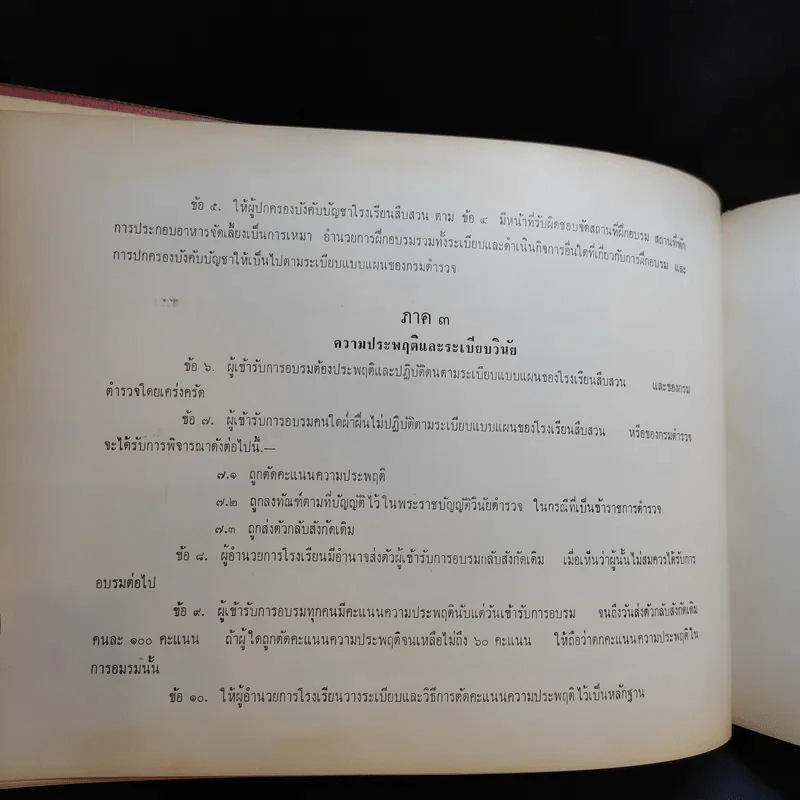 ข้อ ๕. ให้ผู้ปกครองบังคับบัญชาโรงเรียนสืบสวน ตาม ข้อ ๔ มีหน้าที่รับผิดชอบจัดสถานที่ฝึกอบรม สถานที่พัก
การประกอบอาหารจัดเลี้ยงเป็นการเหมา อำนวยการฝึกอบรมรวมทั้งระเบียบและดำเนินกิจการอื่นใดที่เกี่ยวกับการฝึกอบรม และ
การปกครองบังคับบัญชาให้เป็นไปตามระเบียบแบบแผนของกรมตำรวจ
ภาค ๓
ความประพฤติและระเบียบวินัย
ข้อ ๖. ผู้เข้ารับการอบรมต้องประพฤติและปฏิบัติตนตามระเบียบแบบแผนของโรงเรียนสืบสวน และของกรม
ตำรวจโดยเคร่งครัด
ข้อ ๗. ผู้เข้ารับการอบรมคนใดฝ่าฝืนไม่ปฏิบัติตามระเบียบแบบแผนของโรงเรียนสืบสวน หรือของกรมตำรวจ
จะได้รับการพิจารณาดังต่อไปนี้.—
๗.๑ ถูกตัดคะแนนความประพฤติ
๗.๒ ถูกลงทัณฑ์ตามที่บัญญัติไว้ในพระราชบัญญัติวินัยตำรวจ ในกรณีที่เป็นข้าราชการตำรวจ
๗.๓ ถูกส่งตัวกลับสังกัดเดิม
ข้อ ๘. ผู้อำนวยการโรงเรียนมีอำนาจส่งตัวผู้เข้ารับการอบรมกลับสังกัดเดิม เมื่อเห็นว่าผู้นั้นไม่สมควรได้รับการ
อบรมต่อไป
ข้อ ๙. ผู้เข้ารับการอบรมทุกคนมีคะแนนความประพฤตินับแต่วันเข้ารับการอบรม จนถึงวันส่งตัวกลับสังกัดเดิม
คนละ ๑๐๐ คะแนน ถ้าผู้ใดถูกตัดคะแนนความประพฤติจนเหลือไม่ถึง ๖๐ คะแนน ให้ถือว่าตกคะแนนความประพฤติใน
การอมรมนั้น
ข้อ ๑๐. ให้ผู้อำนวยการโรงเรียนวางระเบียบและวิธีการตัดคะแนนความประพฤติไว้เป็นหลักฐาน